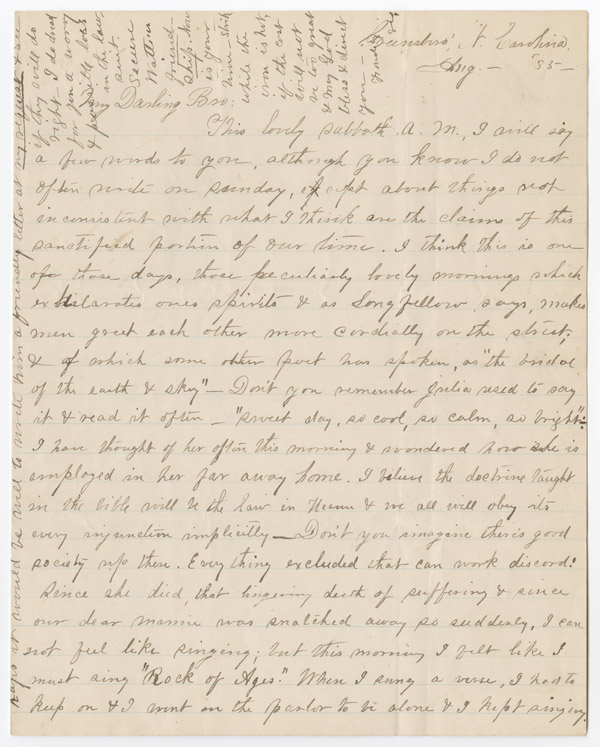 Greensboro', N. Carolina,
Aug. — '85 —
My Darling Bro:
This lovely sabbath A. M., I will say
a few words to you, although you know I do not
often write on sunday, except about things not
inconsistent with what I think are the claims of this
sanctified portion of our time. I think this is one
of those days, those peculiarly lovely mornings which
exhilarates ones spirits & as Longfellow, says, makes
men greet each other more cordially on the street;
& of which some other poet has spoken, as "the bridal
of the earth & sky" — Don't you remember Julia used to say
it & read it often — "sweet day, so cool, so calm, so bright":
I have thought of her often this morning & wondered how she is
employed in her far away home. I believe the doctrine taught
in the bible will be the law in Heaven & we all will obey its
every injunction implicitly — Don't you imagine theris good
society up there. Everything excluded that can work discord!
Since she died, that lingering death of suffering & since
our dear mamie was snatched away so suddenly, I can
not feel like singing; but this morning I felt like I
must sing "Rock of Ages." When I sung a verse, I had to
keep on & I went in the parlor to be alone & I kept singing.
haps it would be well to write him a friendly letter at my request & see
if they will do
right — I do dread
for you a worry
& possible loss
in the law
suit.
Secure
Watters
friend-
ship. Now
is your
time — Strike
while the
iron is hot,
if the cost
will not
be too great
& my God
bless & direct
you —